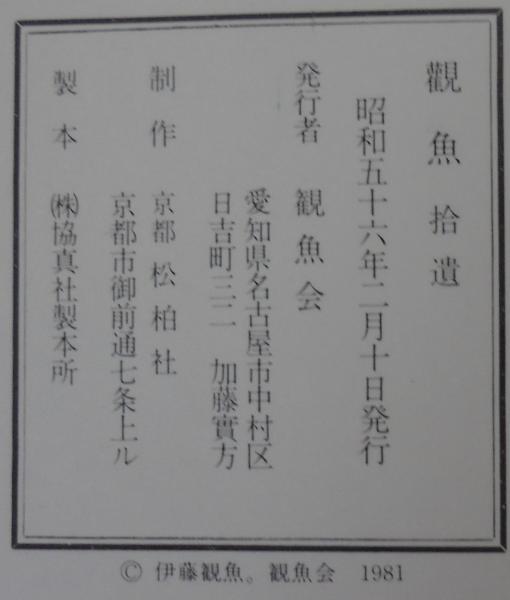 觀魚拾遺
昭和五十六年二月十日発行
発行者 観魚会
愛知県名古屋市中村区
日吉町三二 加藤實方
制作 京都松柏社
京都市御前通七条上ル
製本 ㈱協真社製本所
© 伊藤観魚。観魚会 1981